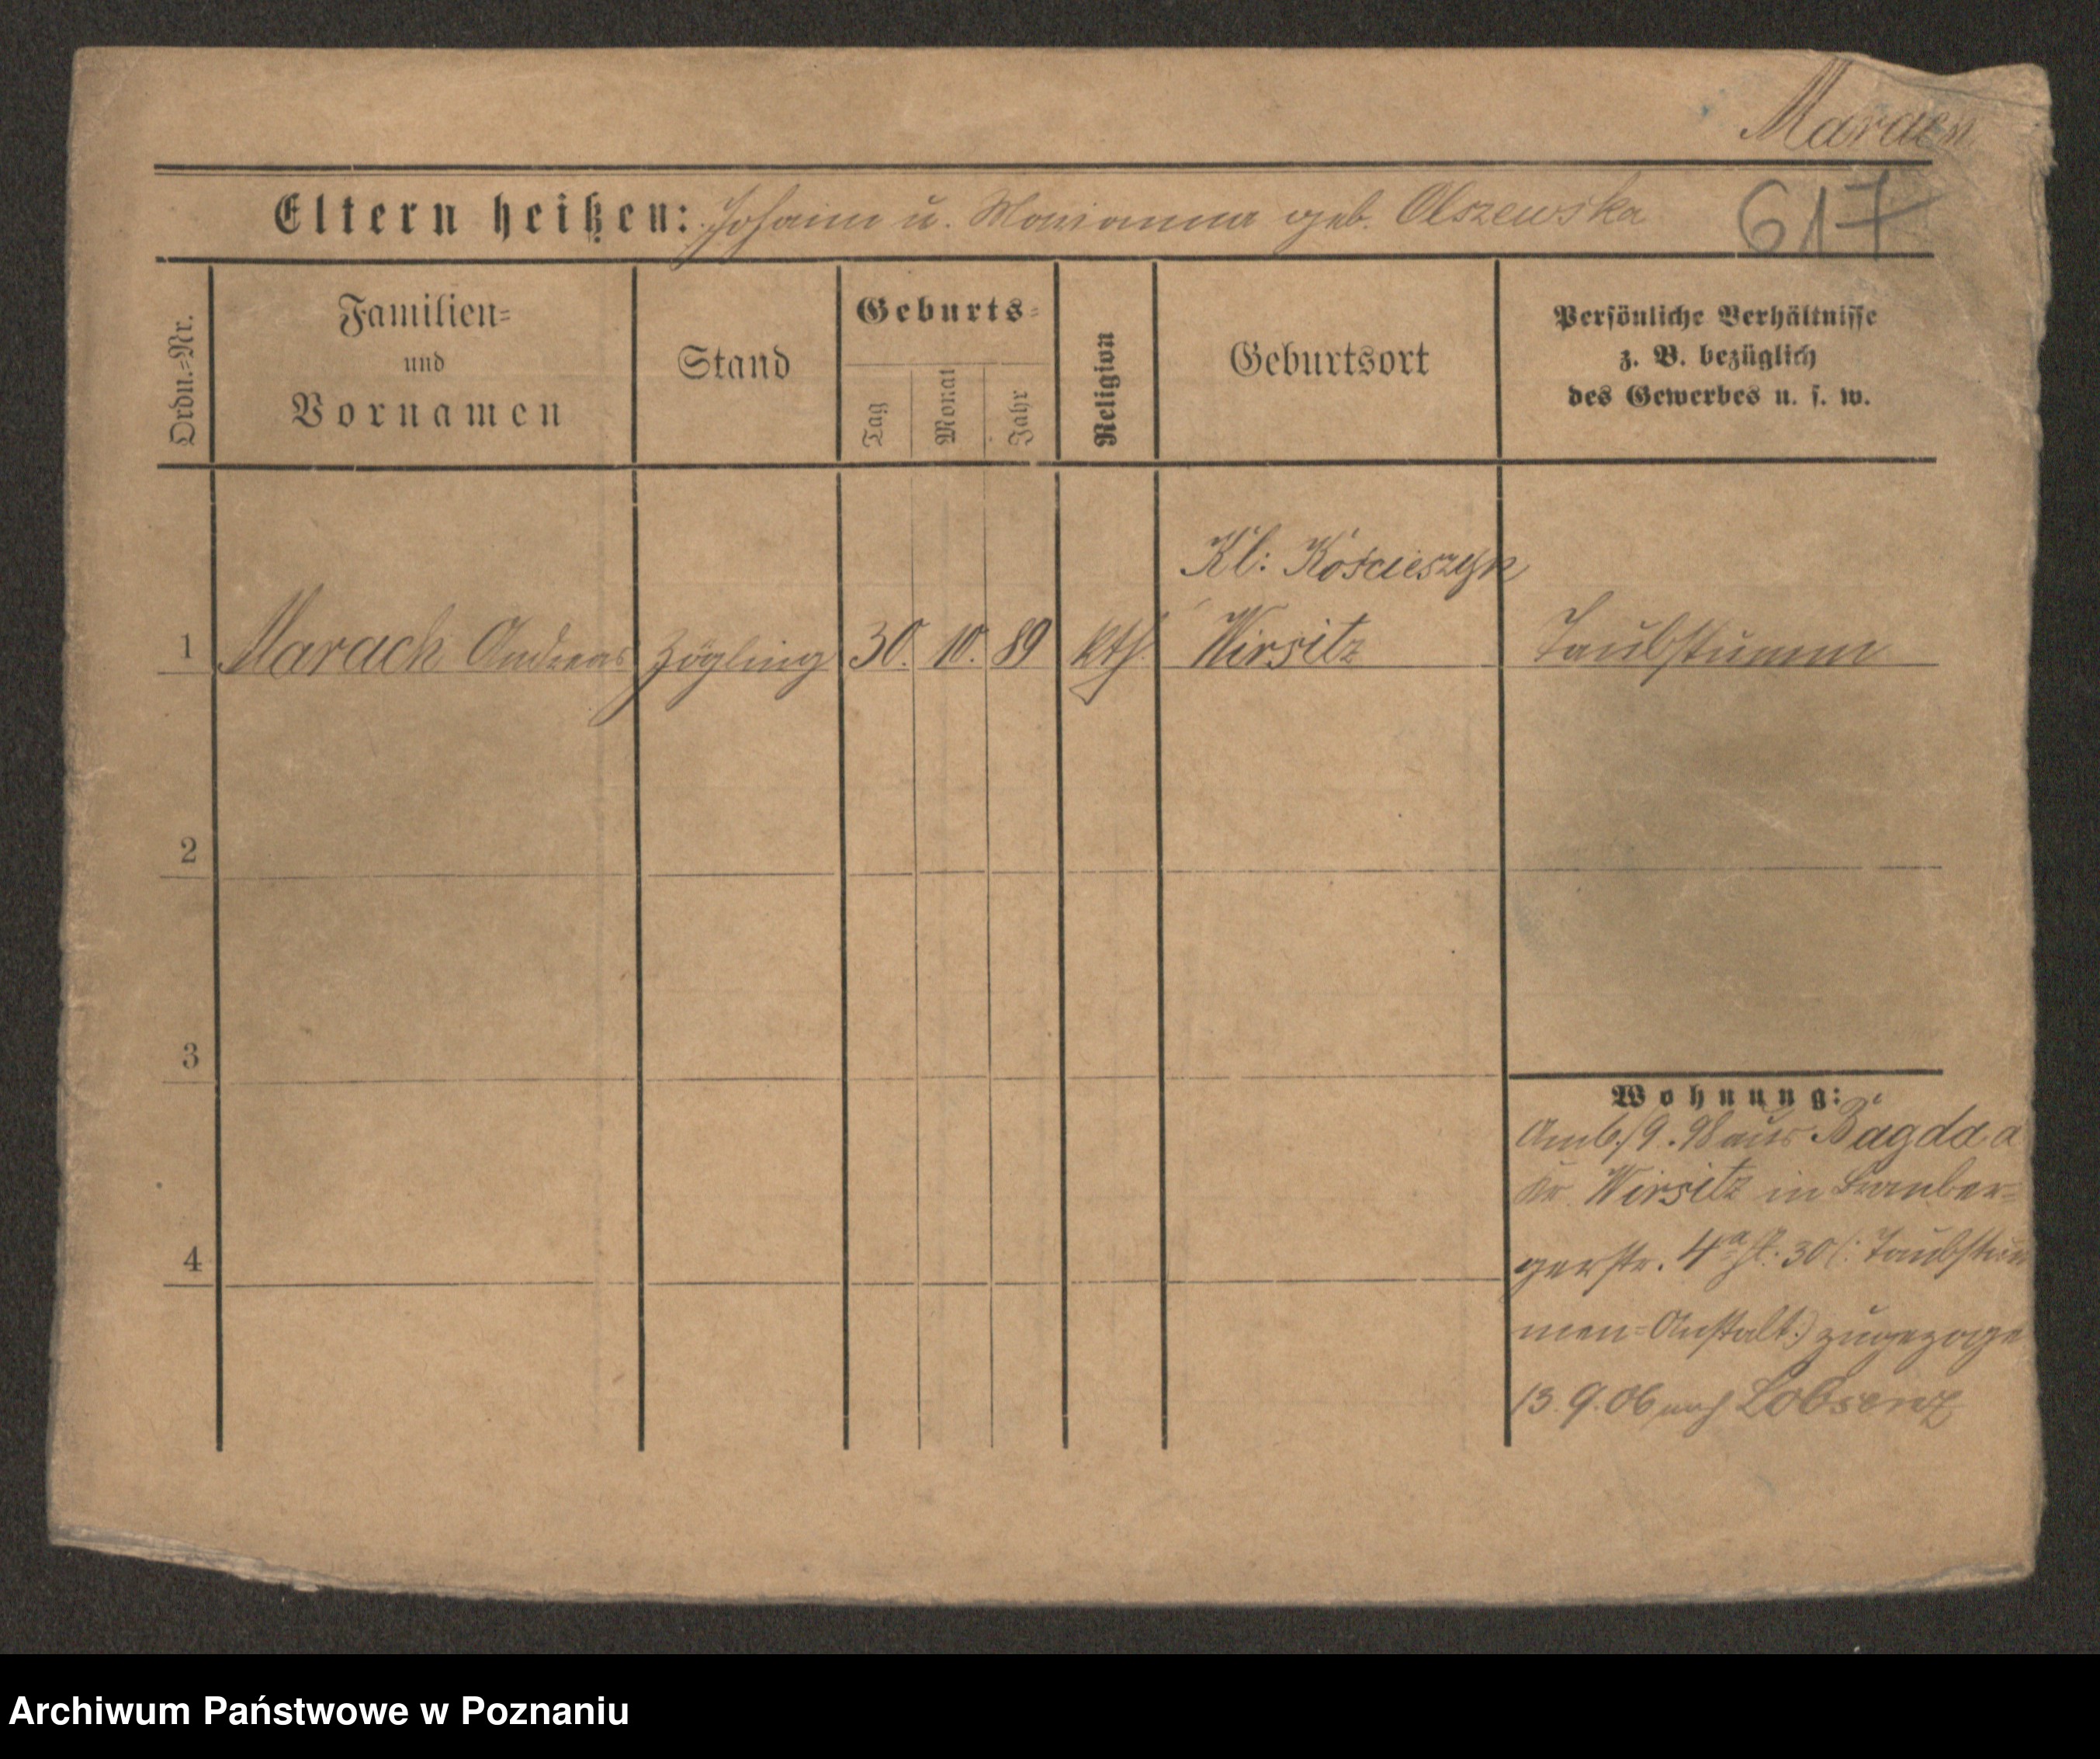 Marach
Eltern heißen: Johann u. Marianna geb. Olszewska
617
Ordn.=Nr.
Familien=
und
Vornamen
Stand
Geburts=
Tag
Monat
Jahr
Religion
Geburtsort
Persönliche Verhältnisse
z. B. bezüglich
des Gewerbes u. s. w.
Kl: Kościeszyn
1 Marach Andreas Zögling 30. 10. 89 kth. Wirsitz Taubstumm
2
3
Wohnung:
9. 98 aus Bagdad
Kr. Wirsitz in
gerstr. 4a 30 (: Taubstum
4
men=Anstalt:) zugezoge
13. 9. 06 nach Lobsenz
Archiwum Państwowe w Poznaniu